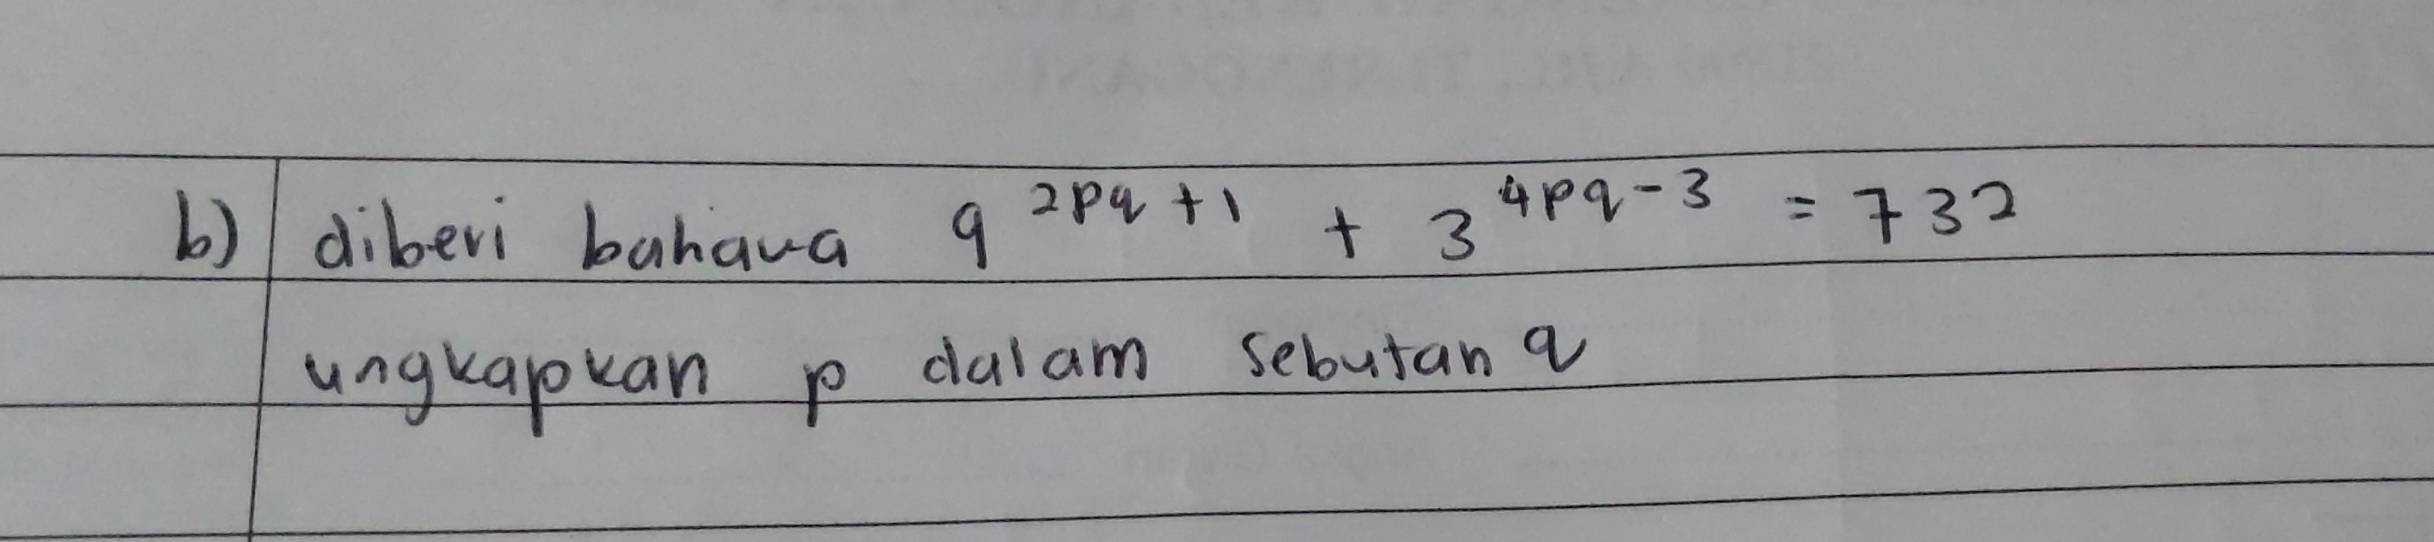 b) diberi bahawa 9^{2pq+1} + 3^{4pq-3} = 732
ungkapkan p dalam sebutan q